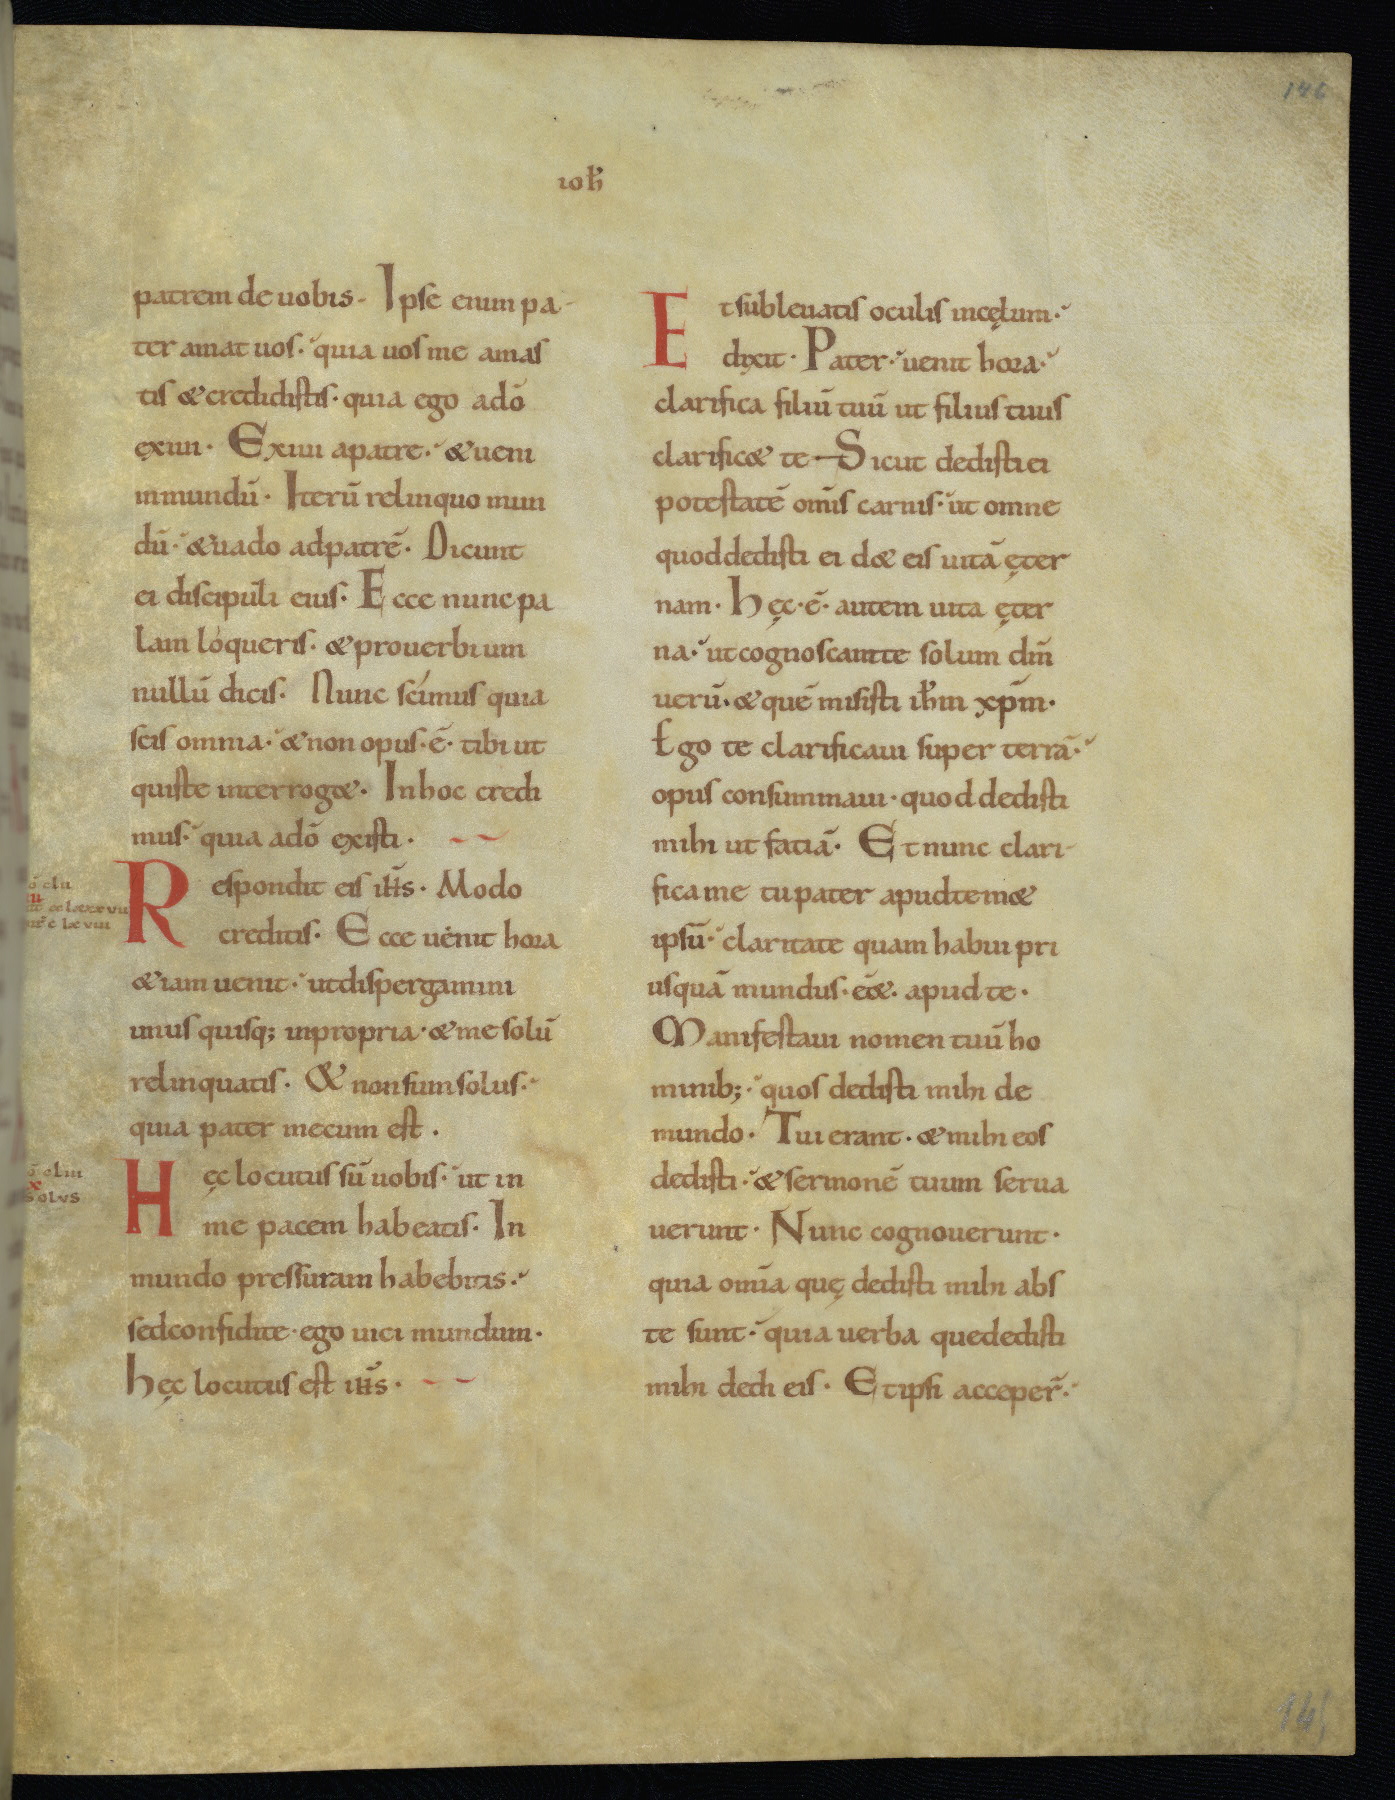 146
ioħ
patrem de uobis. Ipse enim pa-
ter amat uos. quia uos me amas
tis & credidistis. quia ego adō
exiui. Exiui apatre. & ueni
inmundū. Iterū relinquo mun
dū. & uado adpatrē. Dicunt
ei discipuli eius. Ecce nunc pa
lam loqueris. & prouerbium
nullū dicis. Nunc scimus quia
scis omnia. & non opus .ē. tibi ut
quiste interrog&. Inhoc credi
mus. quia adō existi.
Respondit eis ih̄s. Modo
creditis. Ecce uenit hora
& iam uenit. utdispergamini
unus quisq; inpropria. & me solū
relinquatis. & non sum solus.
quia pater mecum est.
Hęc locutus sū uobis. ut in
me pacem habeatis. In
mundo pressuram habebitis.
sed confidite. ego uici mundum.
hęc locutus est ih̄s.
Et subleuatis oculis incęlum.
dixit. Pater. uenit hora.
clarifica filiū tuū ut filius tuus
clarific& te Sicut dedisti ei
potestatē om̄is carnis. ut omne
quod dedisti ei d& eis uitā ęter
nam. hęc .ē. autem uita ęter
na. ut cognoscant te solum dm̄
uerū. & quē misisti ih̄m xp̄m.
Ego te clarificaui super terrā.
opus consummaui. quod dedisti
mihi ut fatiā. Et nunc clari-
fica me tu pater apud tem&
ipsū. claritate quam habui pri
usquā mundus .eē&. apud te.
Manifestaui nomen tuū ho
minib;. quos dedisti mihi de
mundo. Tui erant. & mihi eos
dedisti. & sermonē tuum serua
uerunt. Nunc cognouerunt.
quia om̄ia quę dedisti mihi abs
te sunt. quia uerba que dedisti
mihi dedi eis. Et ipsi acceper̄.
clii
cliii
x
solus